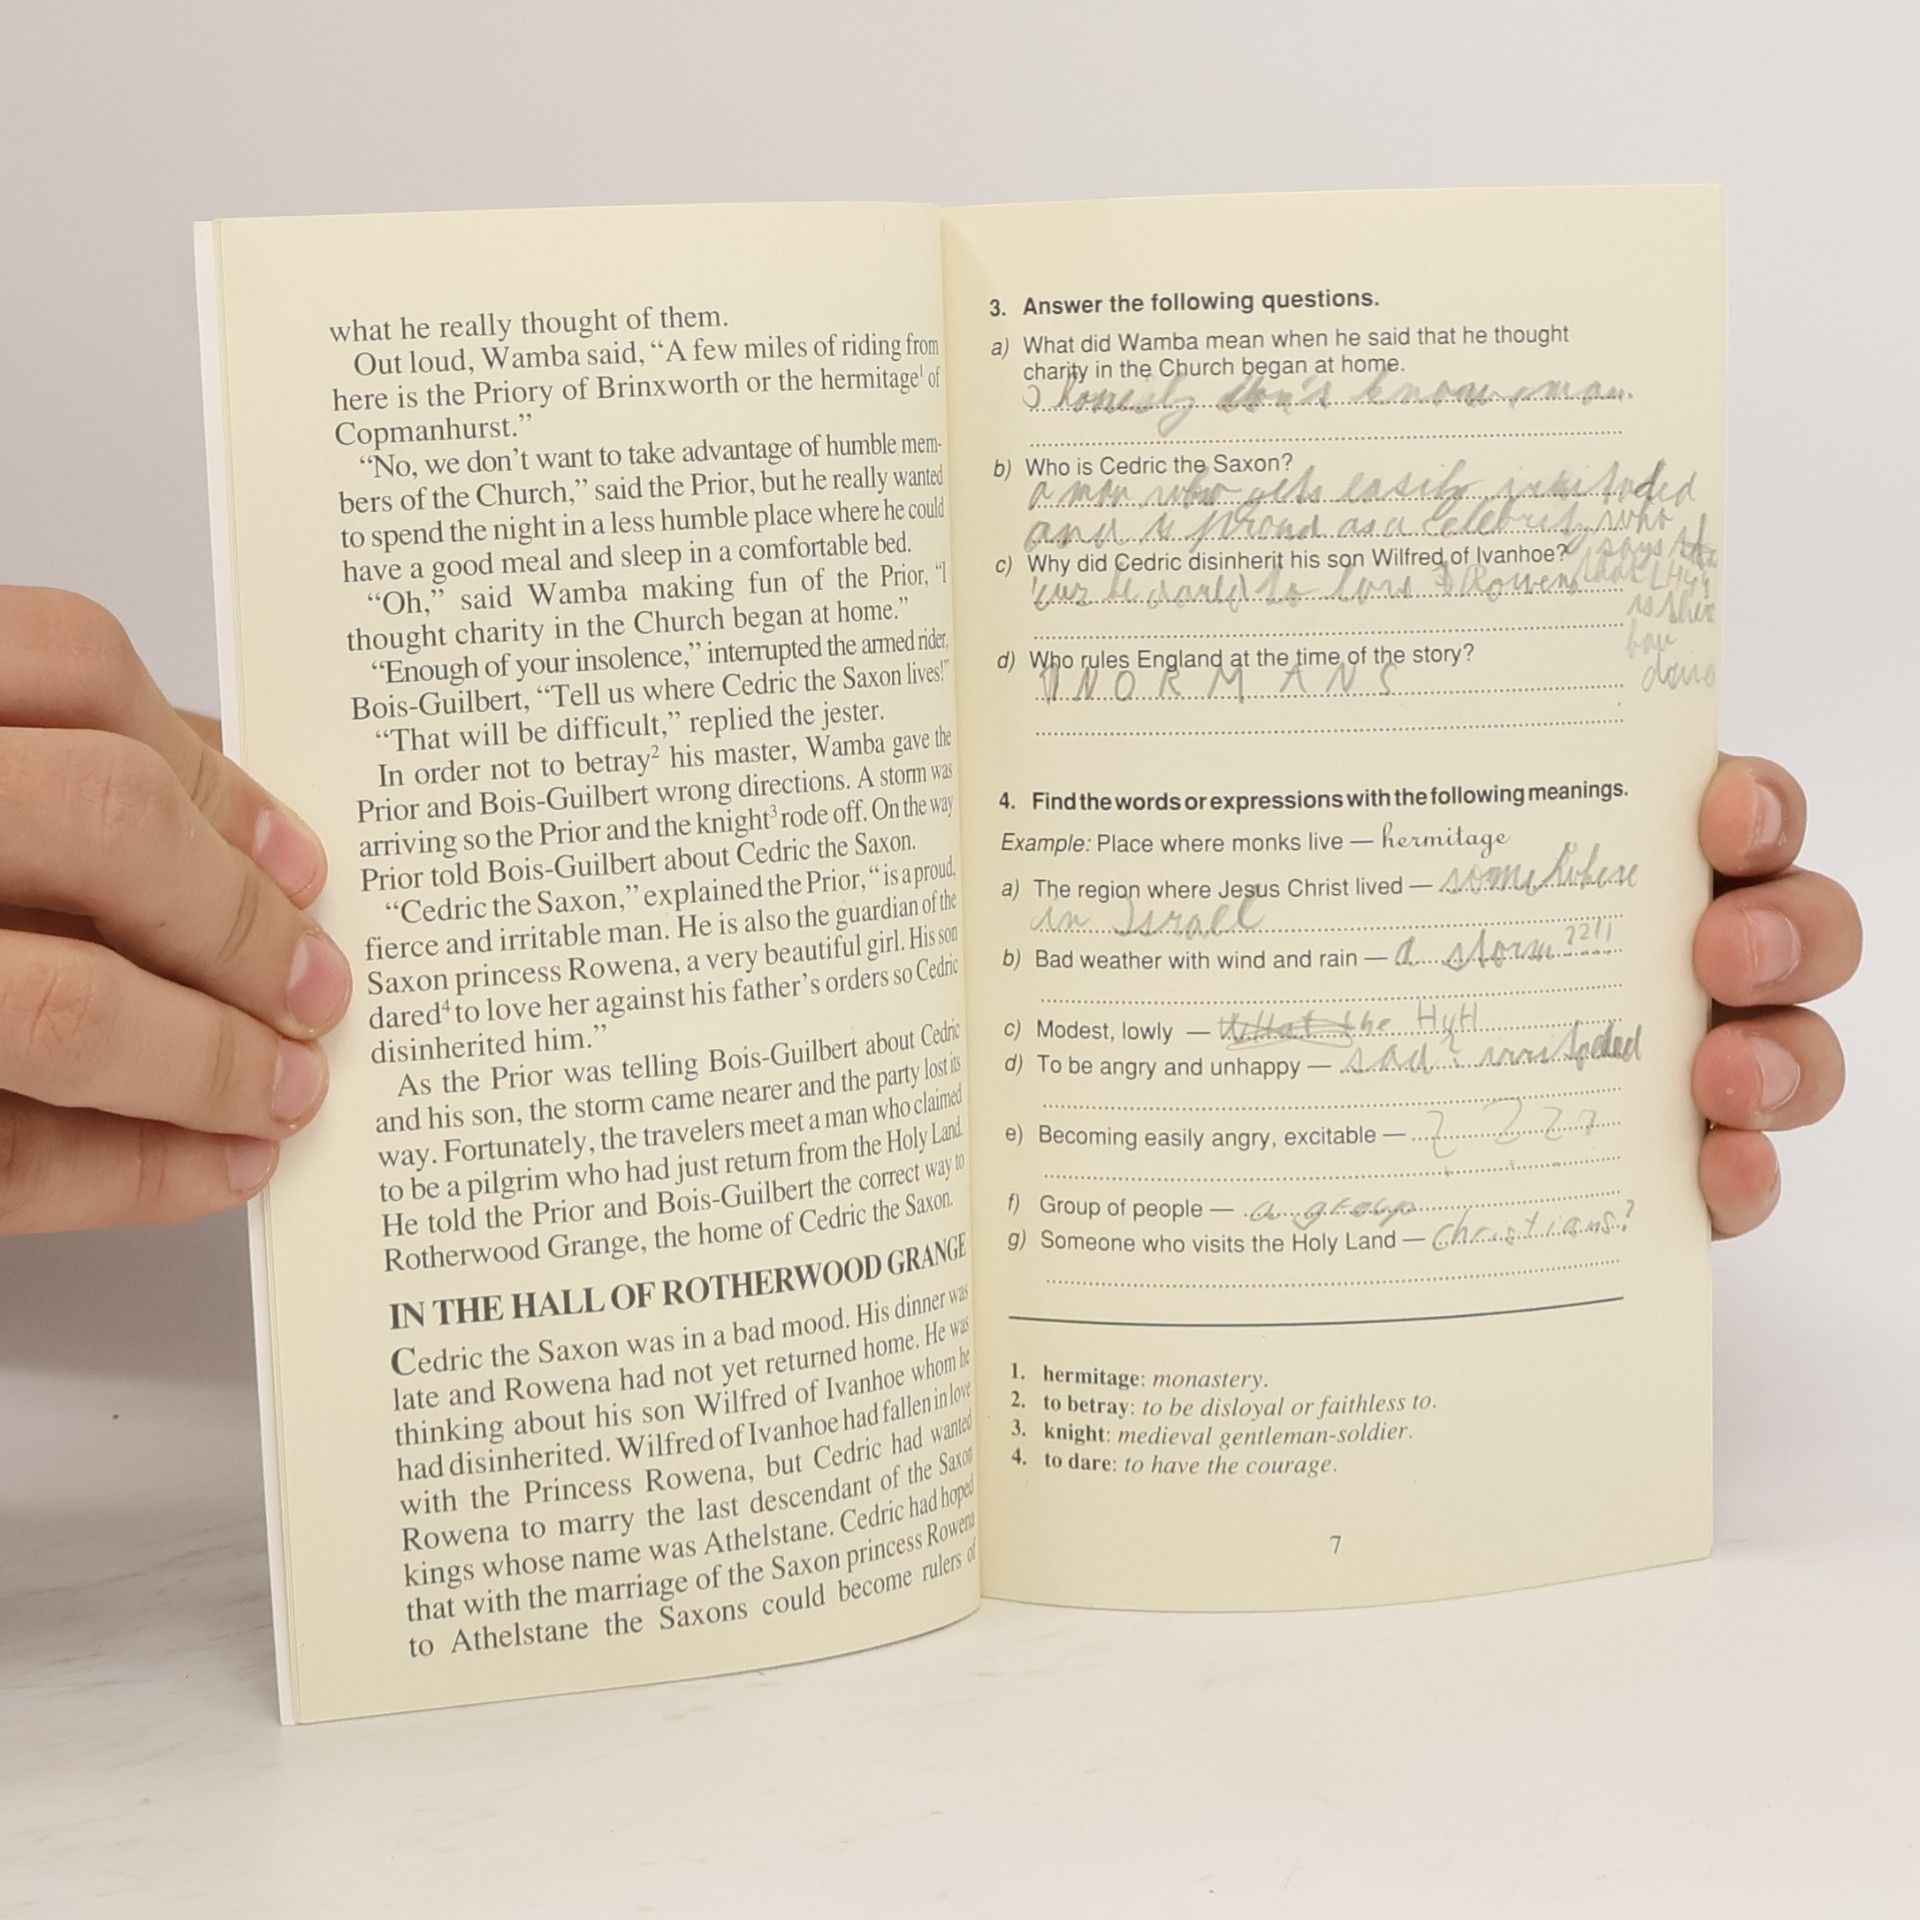 what he really thought of them.
Out loud, Wamba said, “A few miles of riding from
here is the Priory of Brinxworth or the hermitage¹ of
Copmanhurst.”
“No, we don’t want to take advantage of humble mem-
bers of the Church,” said the Prior, but he really wanted
to spend the night in a less humble place where he could
have a good meal and sleep in a comfortable bed.
“Oh,” said Wamba making fun of the Prior, “I
thought charity in the Church began at home.”
“Enough of your insolence,” interrupted the armed rider,
Bois-Guilbert, “Tell us where Cedric the Saxon lives!”
“That will be difficult,” replied the jester.
In order not to betray² his master, Wamba gave the
Prior and Bois-Guilbert wrong directions. A storm was
arriving so the Prior and the knight³ rode off. On the way
Prior told Bois-Guilbert about Cedric the Saxon.
“Cedric the Saxon,” explained the Prior, “is a proud,
fierce and irritable man. He is also the guardian of the
Saxon princess Rowena, a very beautiful girl. His son
dared⁴ to love her against his father’s orders so Cedric
disinherited him.”
As the Prior was telling Bois-Guilbert about Cedric
and his son, the storm came nearer and the party lost its
way. Fortunately, the travelers meet a man who claimed
to be a pilgrim who had just return from the Holy Land.
He told the Prior and Bois-Guilbert the correct way to
Rotherwood Grange, the home of Cedric the Saxon.
IN THE HALL OF ROTHERWOOD GRANGE
Cedric the Saxon was in a bad mood. His dinner was
late and Rowena had not yet returned home. He was
thinking about his son Wilfred of Ivanhoe whom he
had disinherited. Wilfred of Ivanhoe had fallen in love
with the Princess Rowena, but Cedric had wanted
Rowena to marry the last descendant of the Saxon
kings whose name was Athelstane. Cedric had hoped
that with the marriage of the Saxon princess Rowena
to Athelstane the Saxons could become rulers of
3. Answer the following questions.
a) What did Wamba mean when he said that he thought
charity in the Church began at home.
I honestly don't know man.
b) Who is Cedric the Saxon?
a man who gets easily irritaded
and is proud as a celebrity who
says
c) Why did Cedric disinherit his son Wilfred of Ivanhoe?
'cuz he dared to love Rowena
d) Who rules England at the time of the story?
NORMANS
4. Find the words or expressions with the following meanings.
Example: Place where monks live — hermitage
a) The region where Jesus Christ lived — somewhere
in Israel
b) Bad weather with wind and rain — a storm ??!!
c) Modest, lowly — the HyH
d) To be angry and unhappy — sad? irritaded
e) Becoming easily angry, excitable — ? ? ? ?
f) Group of people — a group
g) Someone who visits the Holy Land — christians?
1. hermitage: monastery.
2. to betray: to be disloyal or faithless to.
3. knight: medieval gentleman-soldier.
4. to dare: to have the courage.
7